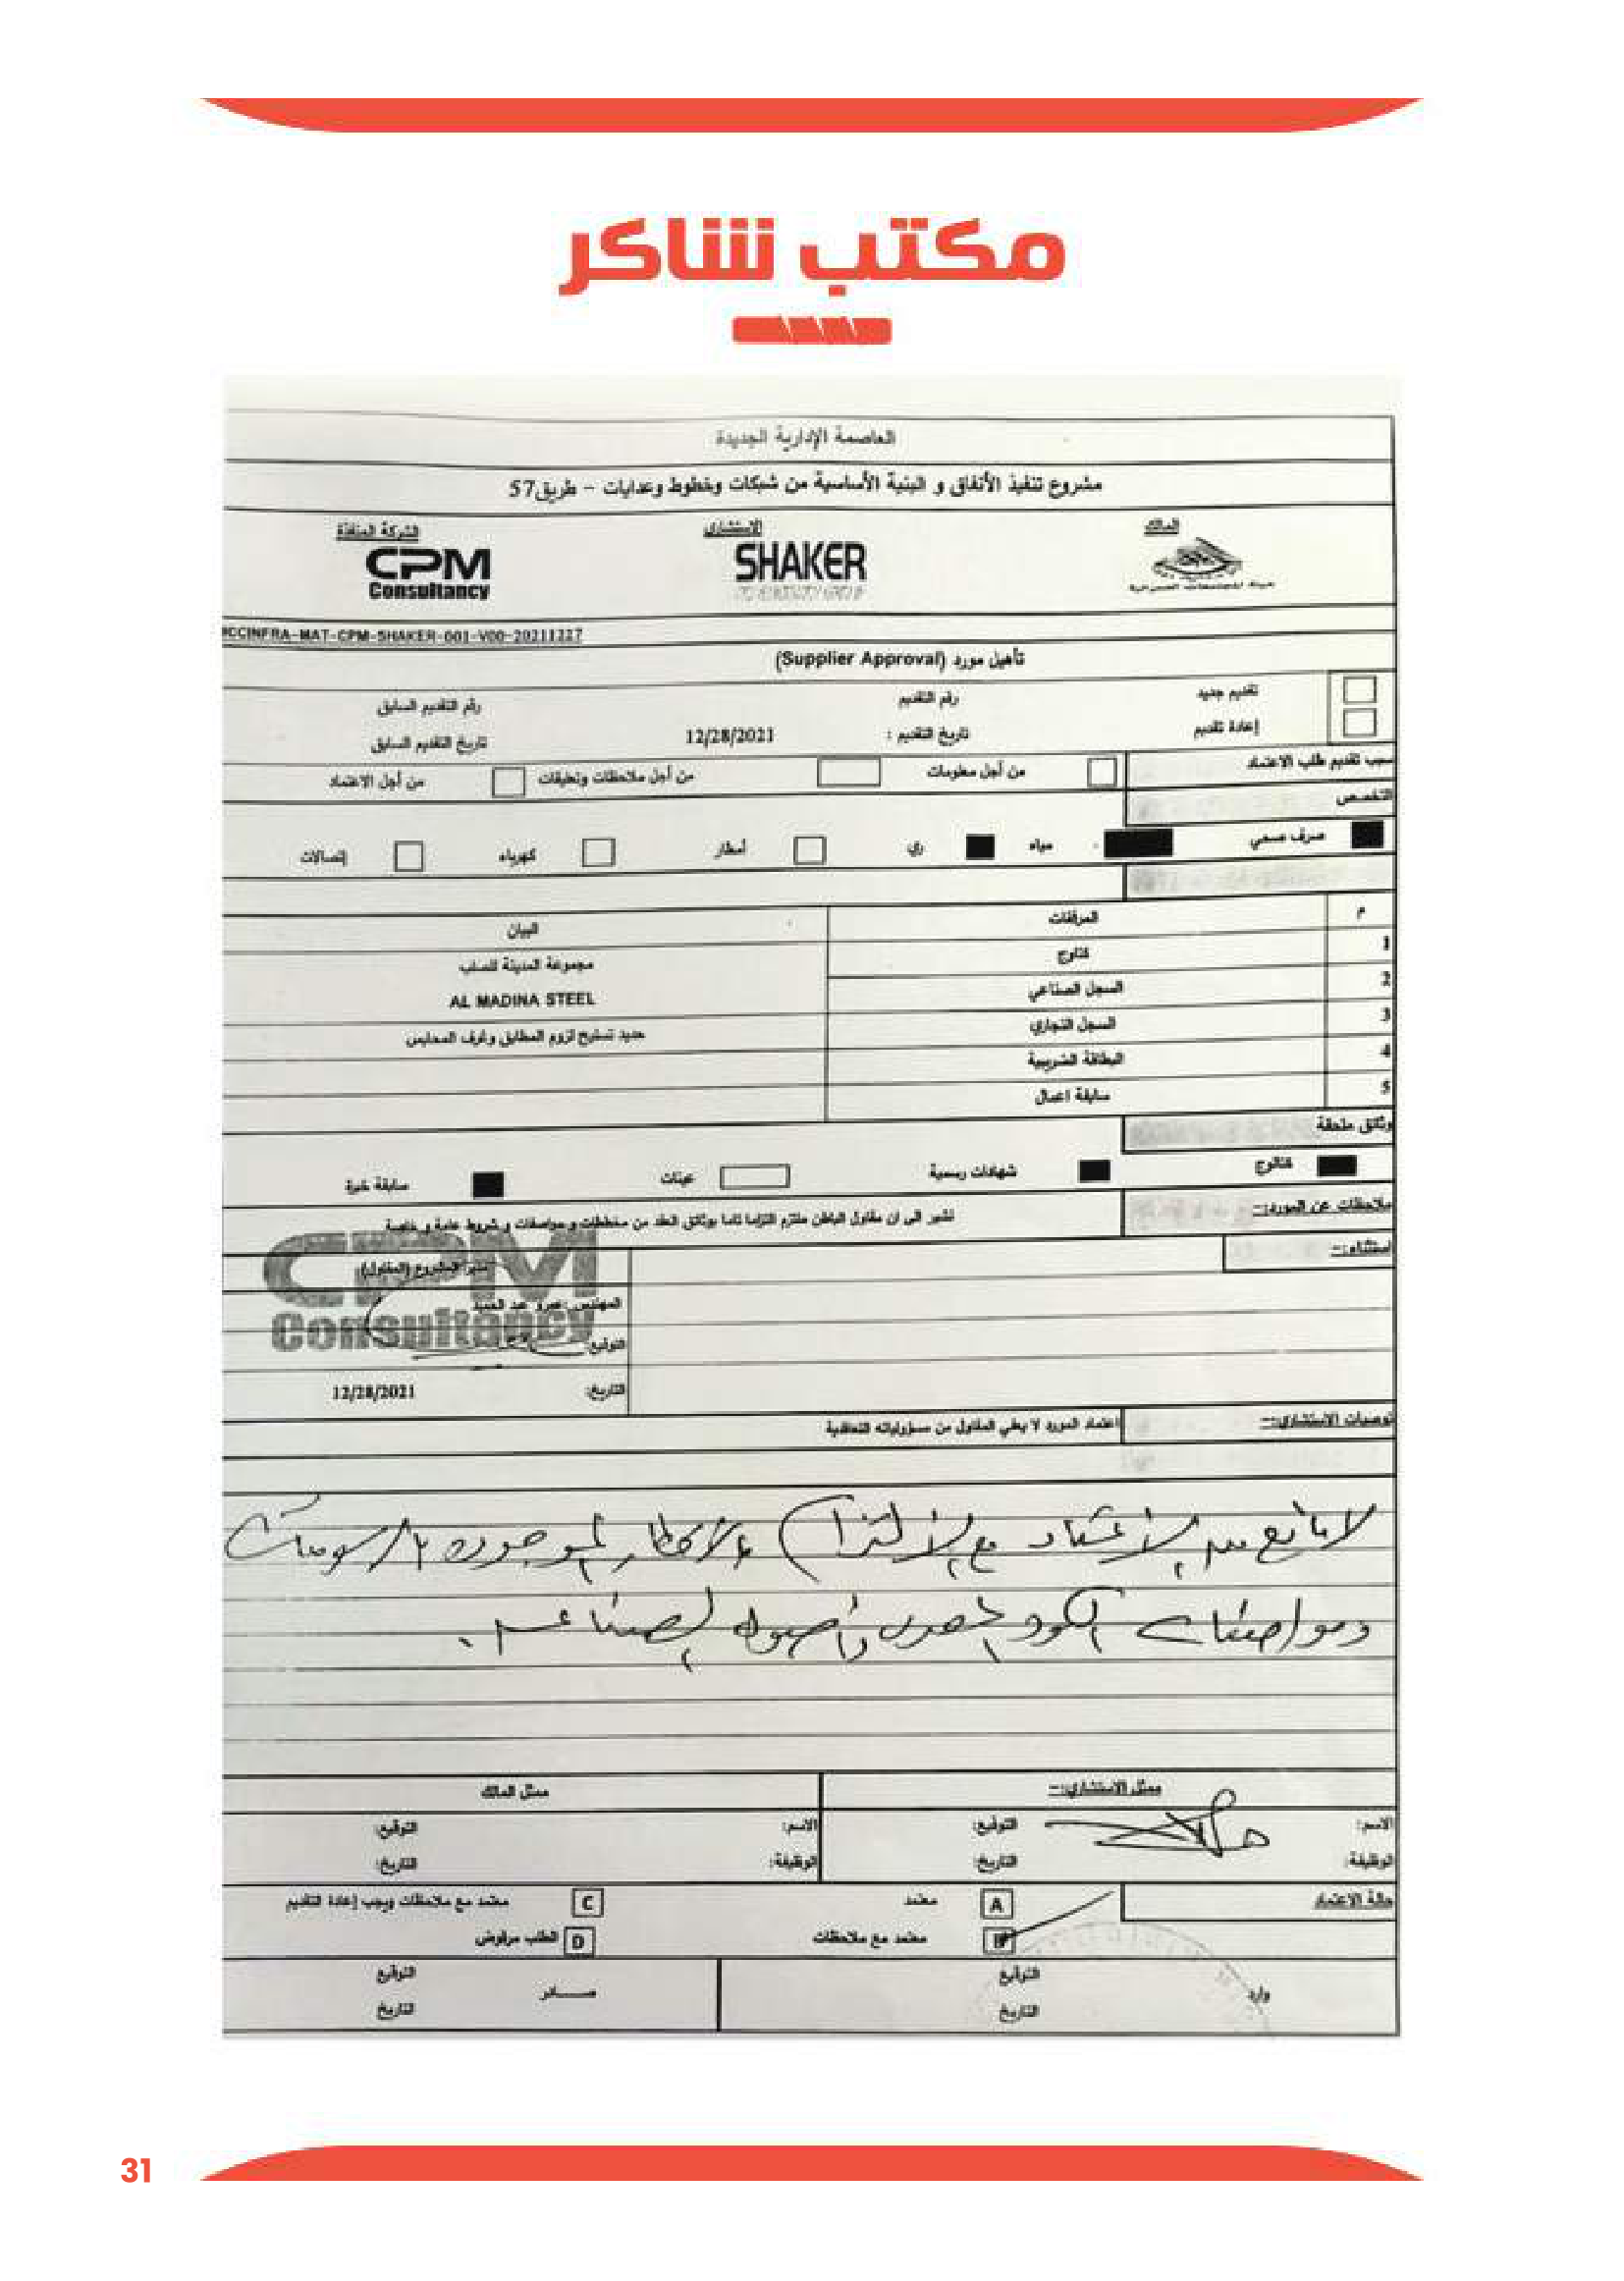 مكتب شاكر
العاصمة الإدارية الجديدة
مشروع تنفيذ الأنفاق و البنية الأساسية من شبكات وخطوط وعدايات - طريق57
المالك
الاستشارى
الشركة المنفذة
SHAKER
CPM
Consultancy
CCINFRA-MAT-CPM-SHAKER-001-V00-20211227
تأهيل مورد (Supplier Approval)
تقديم جديد
رقم التقديم
رقم التقديم السابق
إعادة تقديم
تاريخ التقديم :
12/28/2021
تاريخ التقديم السابق
سبب تقديم طلب الاعتماد
من أجل معلومات
من أجل ملاحظات وتعليقات
من أجل الاعتماد
التخصص
صرف صحي
مياه
ري
أمطار
كهرباء
إتصالات
م
المرفقات
البيان
1
كتالوج
مجموعة المدينة للصلب
2
السجل الصناعي
AL MADINA STEEL
3
السجل التجاري
حديد تسليح لزوم المطابق وغرف المحابس
4
البطاقة الضريبية
5
سابقة اعمال
وثائق ملحقة
كتالوج
شهادات رسمية
عينات
سابقة خبرة
ملاحظات عن المورد:-
نشير الى ان مقاول الباطن ملتزم التزاما تاما بوثائق العقد من مخططات و مواصفات و شروط عامة و خاصة
استثناء:-
CPM
Consultancy
مدير المشروع (المقاول)
المهندس :عمرو عبد الحميد
التوقيع:
التاريخ:
12/28/2021
توصيات الاستشارى:-
اعتماد المورد لا يعفي المقاول من مسؤولياته التعاقدية
لا مانع من الاعتماد مع الالتزام بالأقطار الموجوده بالرسومات
ومواصفات الكود المصرى وأصول الصناعه.
ممثل الاستشاري:-
ممثل المالك
الاسم:
التوقيع:
الاسم:
التوقيع:
الوظيفة:
التاريخ:
الوظيفة:
التاريخ:
حالة الاعتماد
A
معتمد
C
معتمد مع ملاحظات ويجب إعادة التقديم
B
معتمد مع ملاحظات
D
الطلب مرفوض
وارد
التوقيع
صـــادر
التوقيع
التاريخ
التاريخ
31